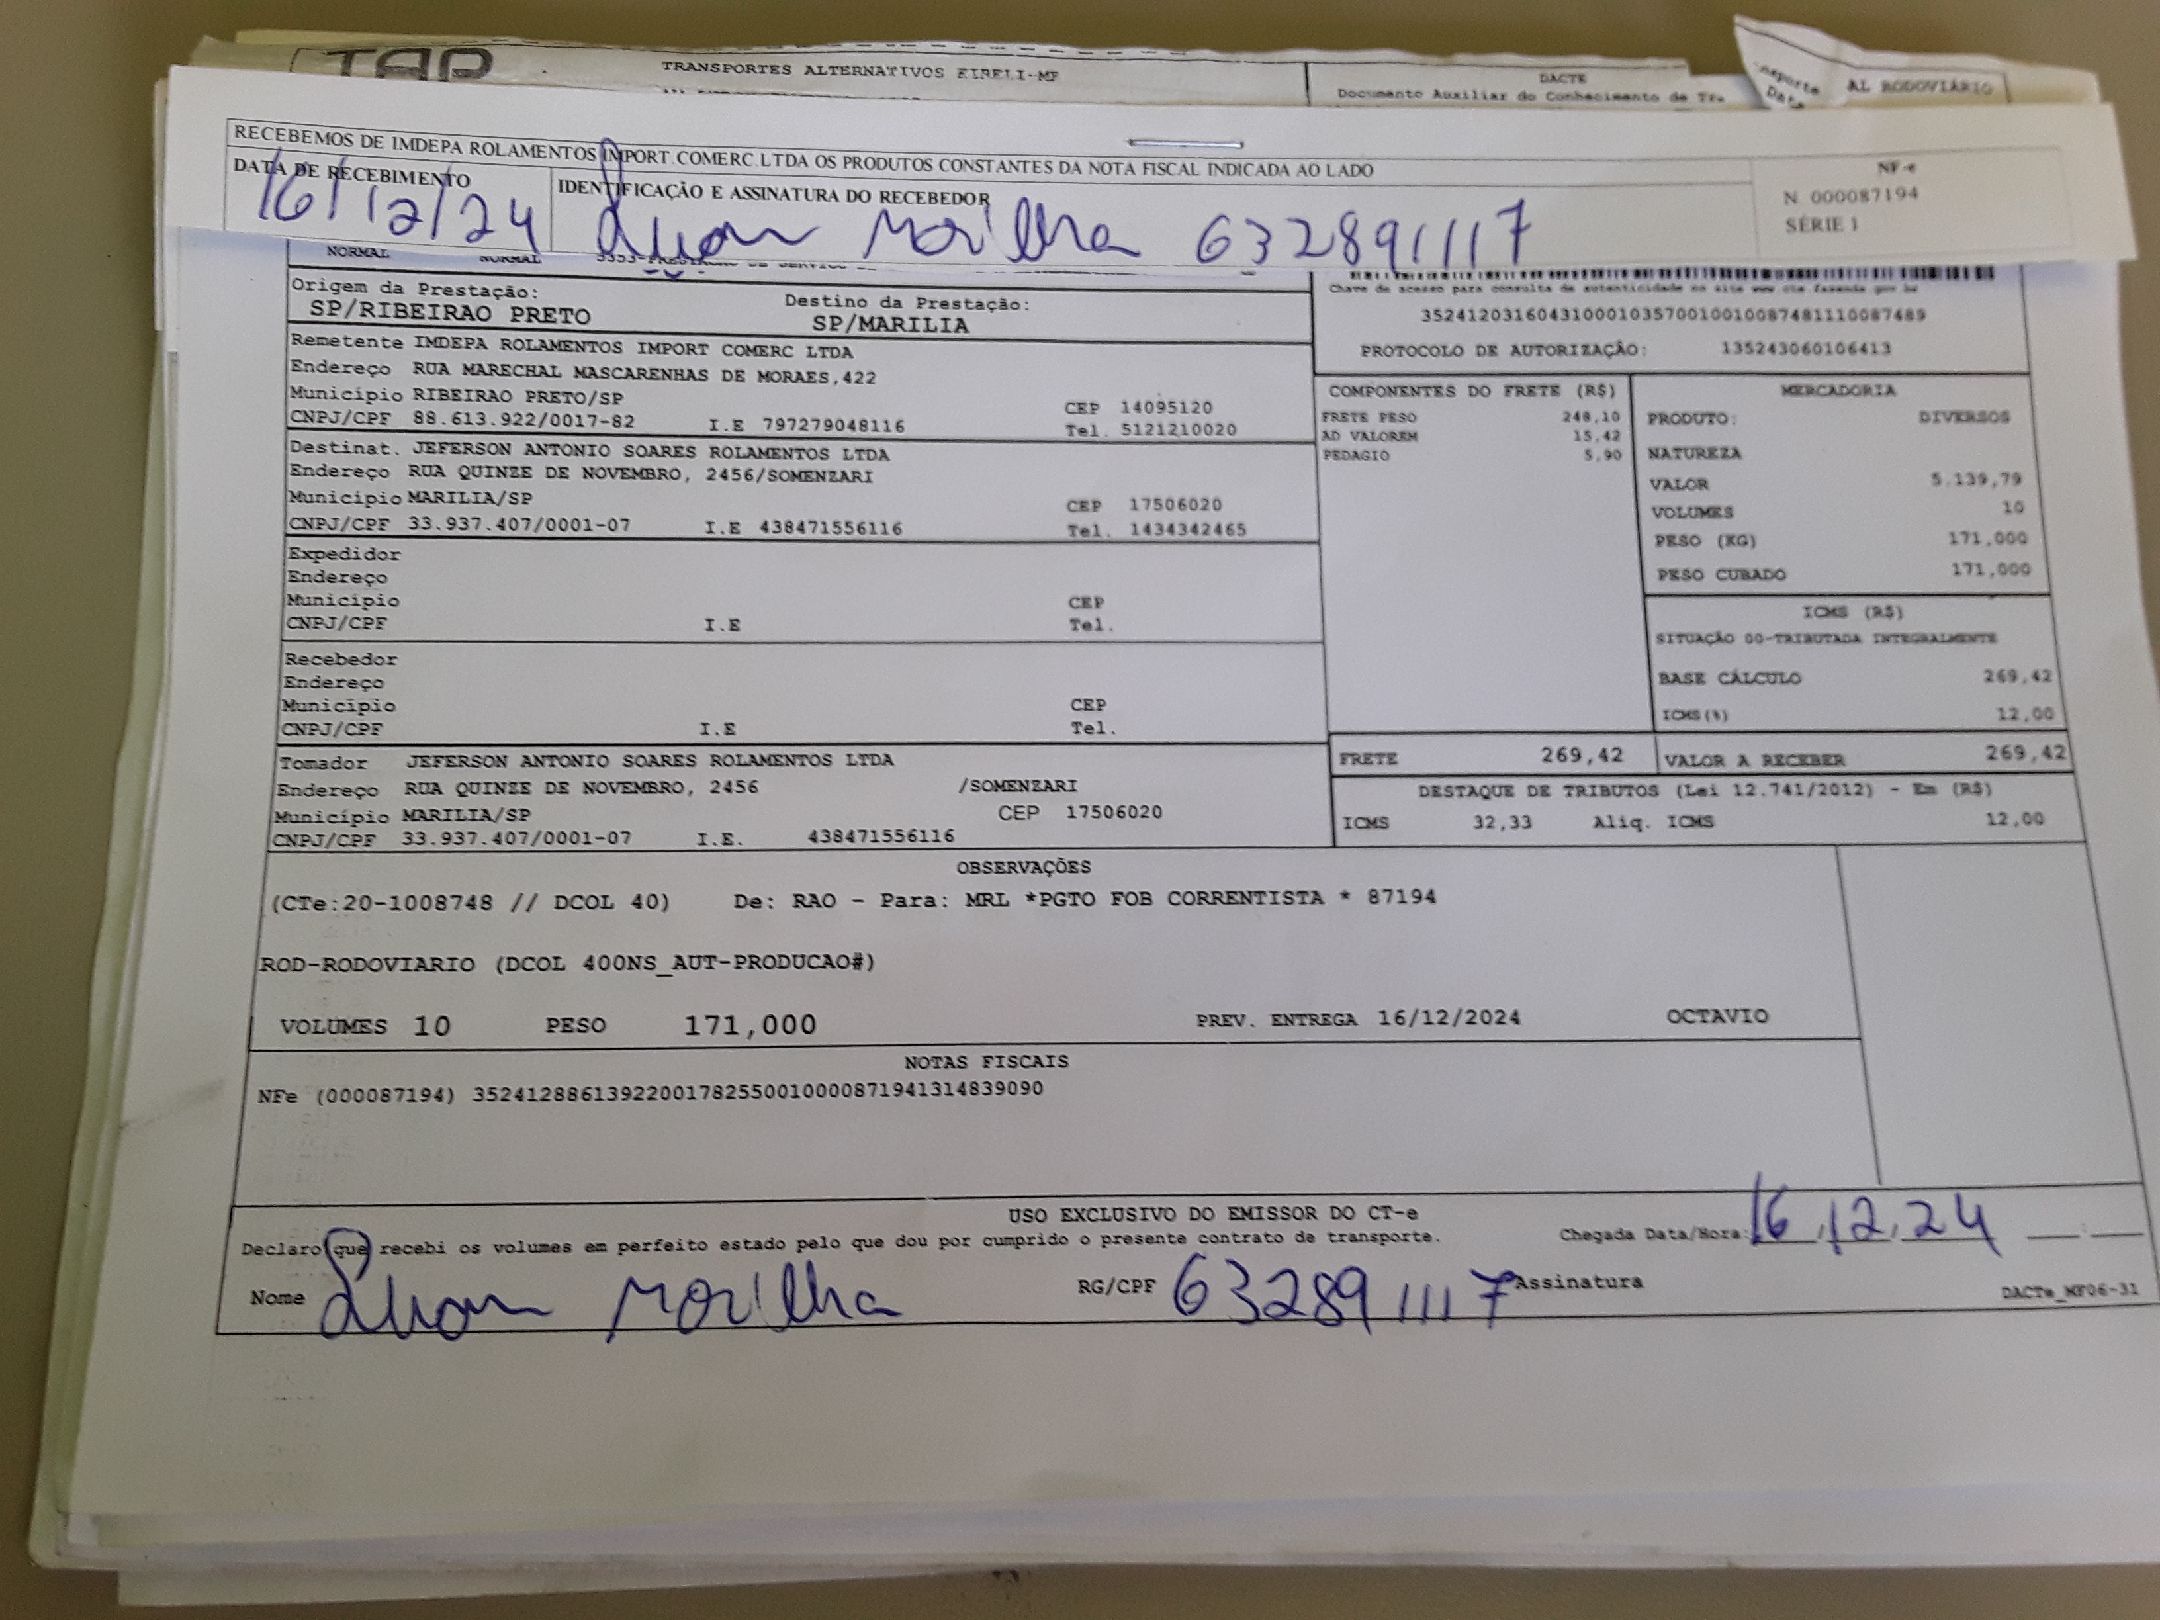 TAP
TRANSPORTES ALTERNATIVOS EIRELI-MF
DACTE
Documento Auxiliar do Conhecimento de Tra
AL RODOVIÁRIO
RECEBEMOS DE IMDEPA ROLAMENTOS IMPORT.COMERC.LTDA OS PRODUTOS CONSTANTES DA NOTA FISCAL INDICADA AO LADO
NF-e
DATA DE RECEBIMENTO IDENTIFICAÇÃO E ASSINATURA DO RECEBEDOR
N. 000087194
SÉRIE 1
16/12/24 Morilha 632891117
NORMAL NORMAL
Chave de acesso para consulta de autenticidade no site www.cte.fazenda.gov.br
Origem da Prestação: Destino da Prestação:
SP/RIBEIRAO PRETO SP/MARILIA
35241203160431000103570010010087481110087489
PROTOCOLO DE AUTORIZAÇÃO: 135243060106413
Remetente IMDEPA ROLAMENTOS IMPORT COMERC LTDA
Endereço RUA MARECHAL MASCARENHAS DE MORAES,422
Município RIBEIRAO PRETO/SP CEP 14095120
CNPJ/CPF 88.613.922/0017-82 I.E 797279048116 Tel. 5121210020
Destinat. JEFERSON ANTONIO SOARES ROLAMENTOS LTDA
Endereço RUA QUINZE DE NOVEMBRO, 2456/SOMENZARI
Município MARILIA/SP CEP 17506020
CNPJ/CPF 33.937.407/0001-07 I.E 438471556116 Tel. 1434342465
Expedidor
Endereço
Município CEP
CNPJ/CPF I.E Tel.
Recebedor
Endereço
Município CEP
CNPJ/CPF I.E Tel.
Tomador JEFERSON ANTONIO SOARES ROLAMENTOS LTDA
Endereço RUA QUINZE DE NOVEMBRO, 2456 /SOMENZARI
Município MARILIA/SP CEP 17506020
CNPJ/CPF 33.937.407/0001-07 I.E. 438471556116
COMPONENTES DO FRETE (R$)
FRETE PESO 248,10
AD VALOREM 15,42
PEDAGIO 5,90
MERCADORIA
PRODUTO: DIVERSOS
NATUREZA
VALOR 5.139,79
VOLUMES 10
PESO (KG) 171,000
PESO CUBADO 171,000
ICMS (R$)
SITUAÇÃO 00-TRIBUTADA INTEGRALMENTE
BASE CÁLCULO 269,42
ICMS(%) 12,00
FRETE 269,42 VALOR A RECEBER 269,42
DESTAQUE DE TRIBUTOS (Lei 12.741/2012) - Em (R$)
ICMS 32,33 Aliq. ICMS 12,00
OBSERVAÇÕES
(CTe:20-1008748 // DCOL 40) De: RAO - Para: MRL *PGTO FOB CORRENTISTA * 87194
ROD-RODOVIARIO (DCOL 400NS_AUT-PRODUCAO#)
VOLUMES 10 PESO 171,000 PREV. ENTREGA 16/12/2024 OCTAVIO
NOTAS FISCAIS
NFe (000087194) 35241288613922001782550010000871941314839090
USO EXCLUSIVO DO EMISSOR DO CT-e
Declaro que recebi os volumes em perfeito estado pelo que dou por cumprido o presente contrato de transporte. Chegada Data/Hora: 16/12/24
Nome Morilha RG/CPF 632891117 Assinatura
DACTe_MF06-31